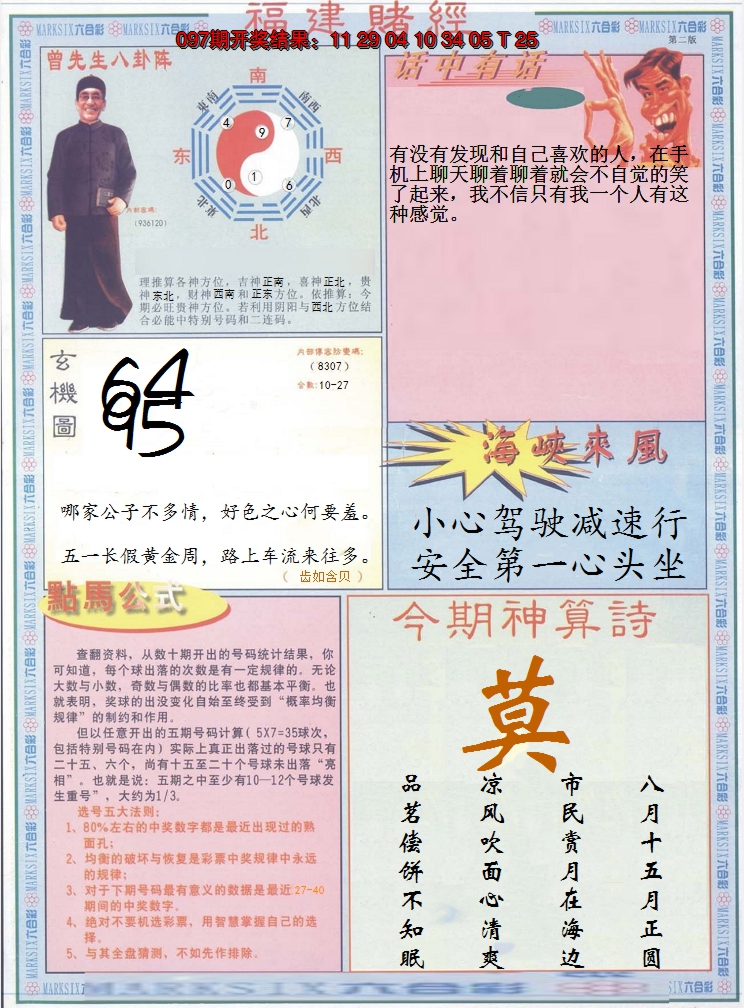 福建賭經
MARKSIX六合彩 MARKSIX六合彩 MARKSIX六合彩 MARKSIX六合彩
097期开奖结果：11 29 04 10 34 05 T 25
第二版
曾先生八卦阵
南
东南
西南
4
9
7
东
西
0
1
6
东北
西北
北
内部密碼:
(936120)
理推算各神方位，吉神正南，喜神正北，贵
神东北，财神西南和正东方位。依推算：今
期必旺贵神方位。若利用阴阳与西北方位结
合必能中特别号码和二连码。
话中有话
有没有发现和自己喜欢的人，在手
机上聊天聊着聊着就会不自觉的笑
了起来，我不信只有我一个人有这
种感觉。
玄機圖
64
95
(8307)
合数:10-27
哪家公子不多情，好色之心何要羞。
五一长假黄金周，路上车流来往多。
（ 齿如含贝 ）
海峽來風
小心驾驶减速行
安全第一心头坐
點馬公式
查翻资料，从数十期开出的号码统计结果，你
可知道，每个球出落的次数是有一定规律的。无论
大数与小数，奇数与偶数的比率也都基本平衡。也
就表明，奖球的出没变化自始至终受到“概率均衡
规律”的制约和作用。
但以任意开出的五期号码计算( 5X7=35球次，
包括特别号码在内) 实际上真正出落过的号球只有
二十五、六个，尚有十五至二十个号球未出落“亮
相”。也就是说：五期之中至少有10—12个号球发
生重号”，大约为1/3。
选号五大法则:
1、80%左右的中奖数字都是最近出现过的熟
面孔；
2、均衡的破坏与恢复是彩票中奖规律中永远
的规律；
3、对于下期号码最有意义的数据是最近27-40
期间的中奖数字。
4、绝对不要机选彩票，用智慧掌握自己的选
择。
5、与其全盘猜测，不如先作排除。
今期神算詩
莫
八月十五月正圆
市民赏月在海边
凉风吹面心清爽
品茗偿饼不知眠